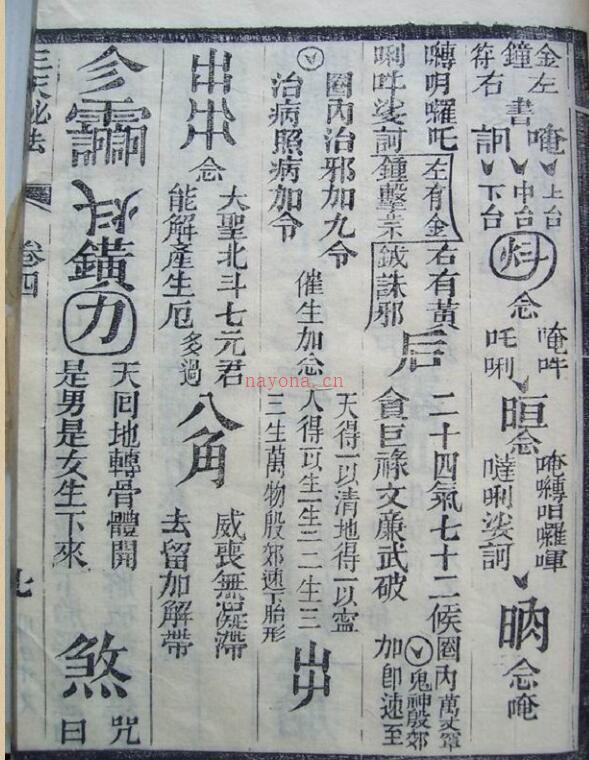 金左
鐘書
符右
唵上台
中台
訶下台
念
唵吽
吒唎
晅
念
唵囀呾囉喗
噠唎娑訶
昞
念唵
囀明囉吒
唎吽娑訶
左有金鐘擊祟
右有黃鉞誅邪
后
二十四氣七十二候
貪巨祿文廉武破
圈內萬丈罩
鬼神殷郊
加卽速至
圈內治邪加九令
治病照病加令
催生加念
天得一以清地得一以靈
人得一以生一生二二生三
三生萬物殷郊速下胎形
出
念
大聖北斗七元君
能解產生厄
多過
八角
威喪無凝滯
去留加解帶
鐄
力
天回地轉骨體開
是男是女生下來
煞
咒曰
卷四
七
nayona.cn